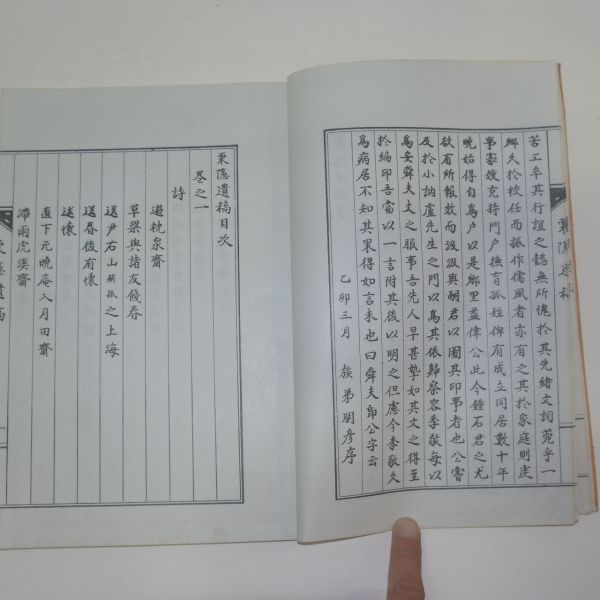 苦工卒其行誼之懿無所愧於其先緒文詞菀乎一
鄉久於校任而振作儒風者亦有之其於家庭則虔
事寡嫂克持門戶撫育孤姪俾有成立同居數十年
晩始得自爲戶以是鄉里益偉公此今鍾石君之尤
欲有所報效而汲汲與嗣君以圖其印事者也公嘗
及於小訥盧先生之門以爲其依歸察容季敬每以
爲安舜夫丈之服事吾先人早甚摯如其文之得至
於編印吾當以一言附其後以明之但慮今季敬久
爲病居不知其果得如言未也曰舜夫卽公字云
乙卯三月 族弟明彦序
栗隱遺稿
栗隱遺稿目次
卷之一
詩
遊枕泉齋
草梁與諸友餞春
送尹右山顯振之上海
送春後有懷
述懷
直下元曉庵入月田齋
滯雨虎溪齋
栗隱遺稿